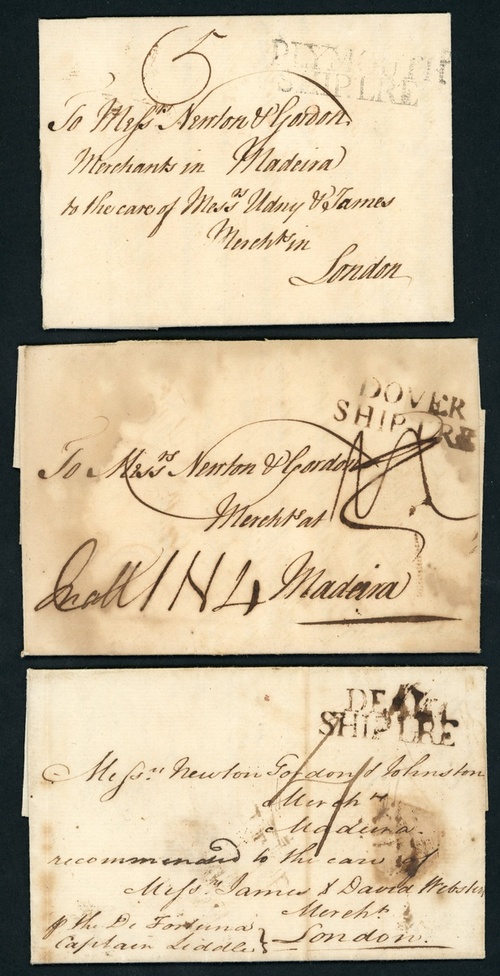 5
PLYMOUTH
SHIP LRE
To Messrs Newton & Gordon
Merchants in Madeira
to the care of Messrs Udny & James
Merchts in
London
DOVER
SHIP LRE
To Messrs Newton & Gordon
Merchts at
In all 1 N 4 Madeira
DEAL
SHIP LRE
Messrs Newton Gordon & Johnston
Merchts
Madeira
recommended to the care of
Messrs James & David Webster
Merchts
London.
p the De Fortuna
Captain Liddle